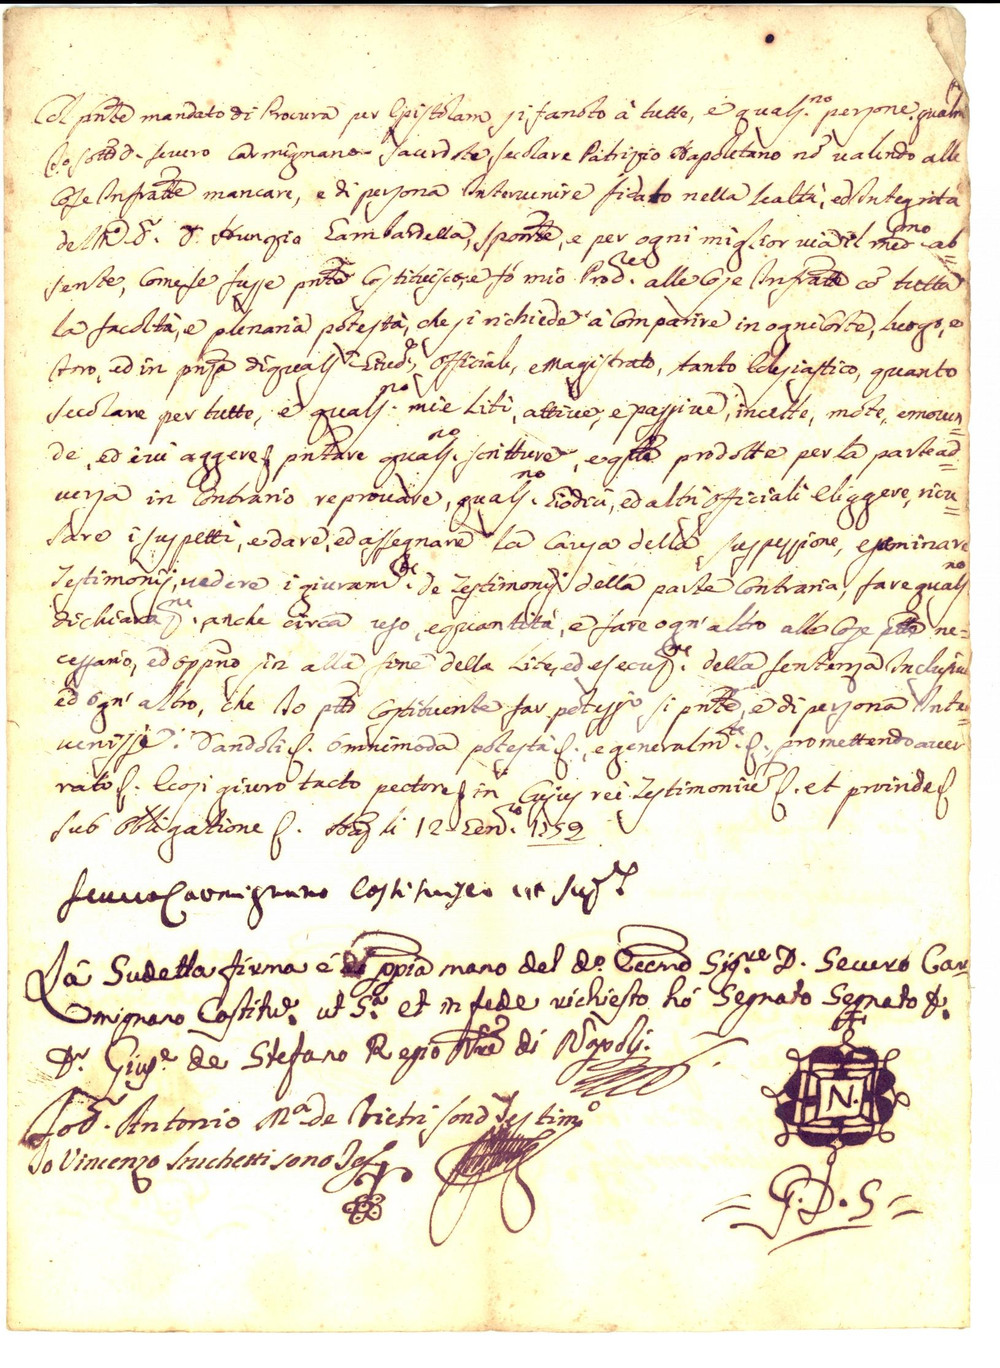 Col pnte mandato di Procura per Epistolam si fa noto à tutte, e quals.no persone, qualm.
Io sotto D. Severo Carmignano Sacerdote secolare Patrizio Napoletano nõ valendo alle
Cose Infratte mancare, e di persona Intervenire fidato nella lealtà, ed Integrità
del D. Nunzio Lambardella, sponte, e per ogni miglior via il med.mo ab=
sente, Come se fusse pnte Costituisco, e fò mio Prod.re alle Cose Infratte cõ tutta
la facoltà, e plenaria potestà, che si richiede à Comparire in ogni Corte, luogo, e
foro, ed in pnza di quals. Giud., officiale, e Magistrato, tanto Eclesiastico, quanto
secolare per tutte, e quals.no mie liti, attive, e passive, incette, mote, e moven=
de, ed ivi aggere, pntare quals.no scritture, e qlle prodotte per la parte ad=
versa in Contrario reprovare, quals.no Giodici, ed altri officiali eliggere, ricu=
sare i suspetti, e dare, ed assegnare la Causa della suspessione, esaminare
Testimonij, vedere i giuram.ti de Testimonij della parte Contraria, fare quals.no
dichiaraz.ne anche circa uso, e quantità, e fare ogn'altro alle Cose ptte ne=
cessario, ed oppno sin alla fine della lite, ed esecuz.ne della sentenza Inclusive
ed ogn'altro, che Io ptto Costituente far potessi si pnte, e di persona Inter=
venisse. Dandoli &. omnimoda potestà &., e generalm.te &., promettendo aver
rato &. E Così giuro tacto pectore & in Cujus rei Testimonium &. et proinde &
sub obligatione &. Nap. li 12 Genn.o 1759
Severo Carmignano Costituisco ut sup.a
Là Sudetta firma é di ppia mano del d.o Recndo Sig.re D. Severo Car=
mignano Costitue. ut S.a et in fede richiesto hò Segnato Segnato
D.r Gius.e de Stefano Regio Not.e di Napoli.
Io D. Antonio M.a de Vietri sono Testimo.o
Io Vincenzo Iuchetti sono Tes.o
N.
= G. D. S =